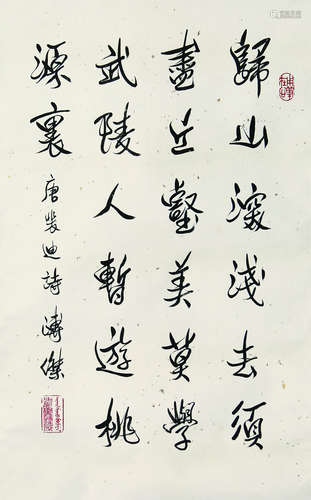 歸山深淺去須
盡丘壑美莫學
武陵人暫遊桃
源裏
唐裴迪詩 溥傑